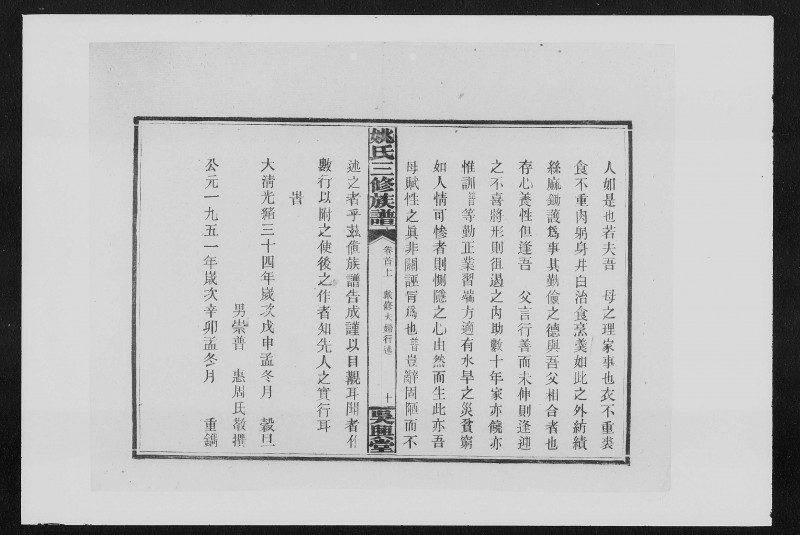 人如是也若夫吾　母之理家事也衣不重裘
食不重肉躬身井臼治食烹羹如此之外紡績
絲麻鋤謢爲事其勤儉之德與吾父相合者也
存心養性但逢吾　父言行善而未伸則逢迎
之不喜將形則徂遏之内助數十年家亦饒亦
惟訓普等勤正業習端方適有水旱之災貧窮
如人情可慘者則惻隱之心由然而生此亦吾
母賦性之眞非關誣冐爲也普豈辭固陋而不
姚氏三修族譜
卷首上　戴修夫婦行述　十
吳興堂
述之者乎兹値族譜告成謹以目觀耳聞者作
數行以附之使後之作者知先人之實行耳
峕
大清光緒三十四年歲次戊申孟冬月　穀旦
男崇普　惠周氏敬撰
公元一九五一年歲次辛卯孟冬月　重鐫